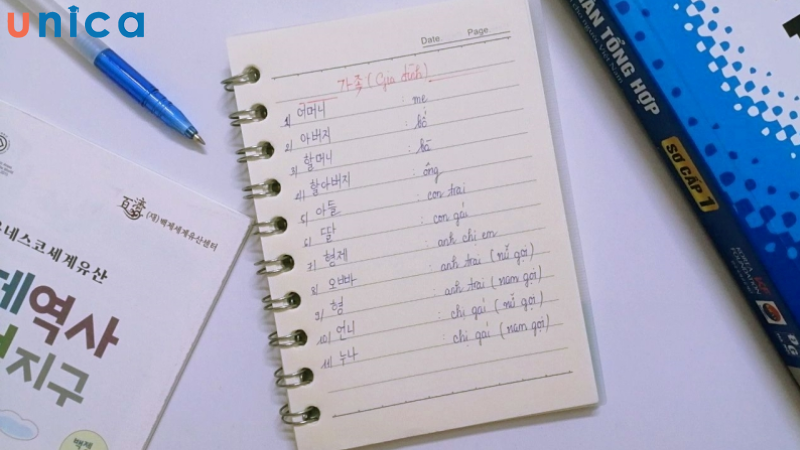 unica
Date
Page
가족 (Gia đình)
1) 어머니 : mẹ
2) 아버지 : bố
3) 할머니 : bà
4) 할아버지 : ông
5) 아들 : con trai
6) 딸 : con gái
7) 형제 : anh chị em
8) 오빠 : anh trai (nữ gọi)
9) 형 : anh trai (nam gọi)
10) 언니 : chị gái (nữ gọi)
11) 누나 : chị gái (nam gọi)
(재)백제세계유산센터
네스코세계유산
제역사
지구
백제
HÀN TỔNG HỢP
SƠ CẤP 1
KOREA
FOUNDATION